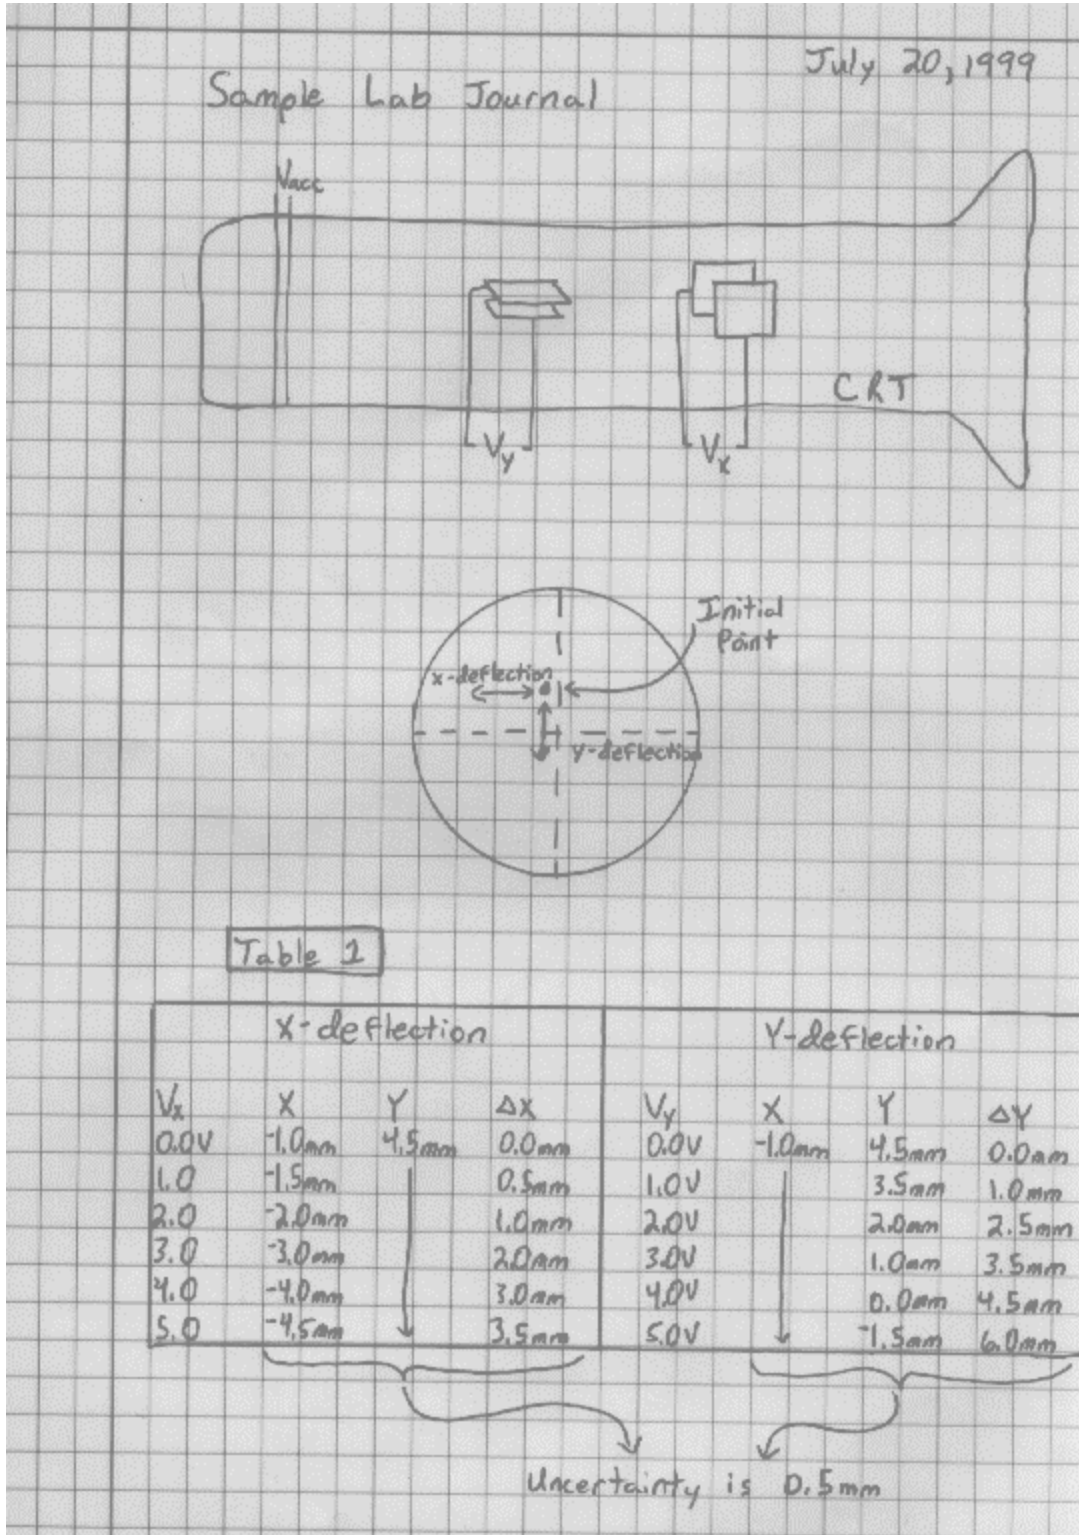 July 20, 1999
Sample Lab Journal
Vacc
CRT
Vy Vx
Initial
Point
x-deflection
y-deflection
Table 1
X-deflection Y-deflection
Vx X Y ΔX Vy X Y ΔY
0.0V -1.0mm 4.5mm 0.0mm 0.0V -1.0mm 4.5mm 0.0mm
1.0 -1.5mm 0.5mm 1.0V 3.5mm 1.0mm
2.0 -2.0mm 1.0mm 2.0V 2.0mm 2.5mm
3.0 -3.0mm 2.0mm 3.0V 1.0mm 3.5mm
4.0 -4.0mm 3.0mm 4.0V 0.0mm 4.5mm
5.0 -4.5mm 3.5mm 5.0V -1.5mm 6.0mm
Uncertainty is 0.5mm